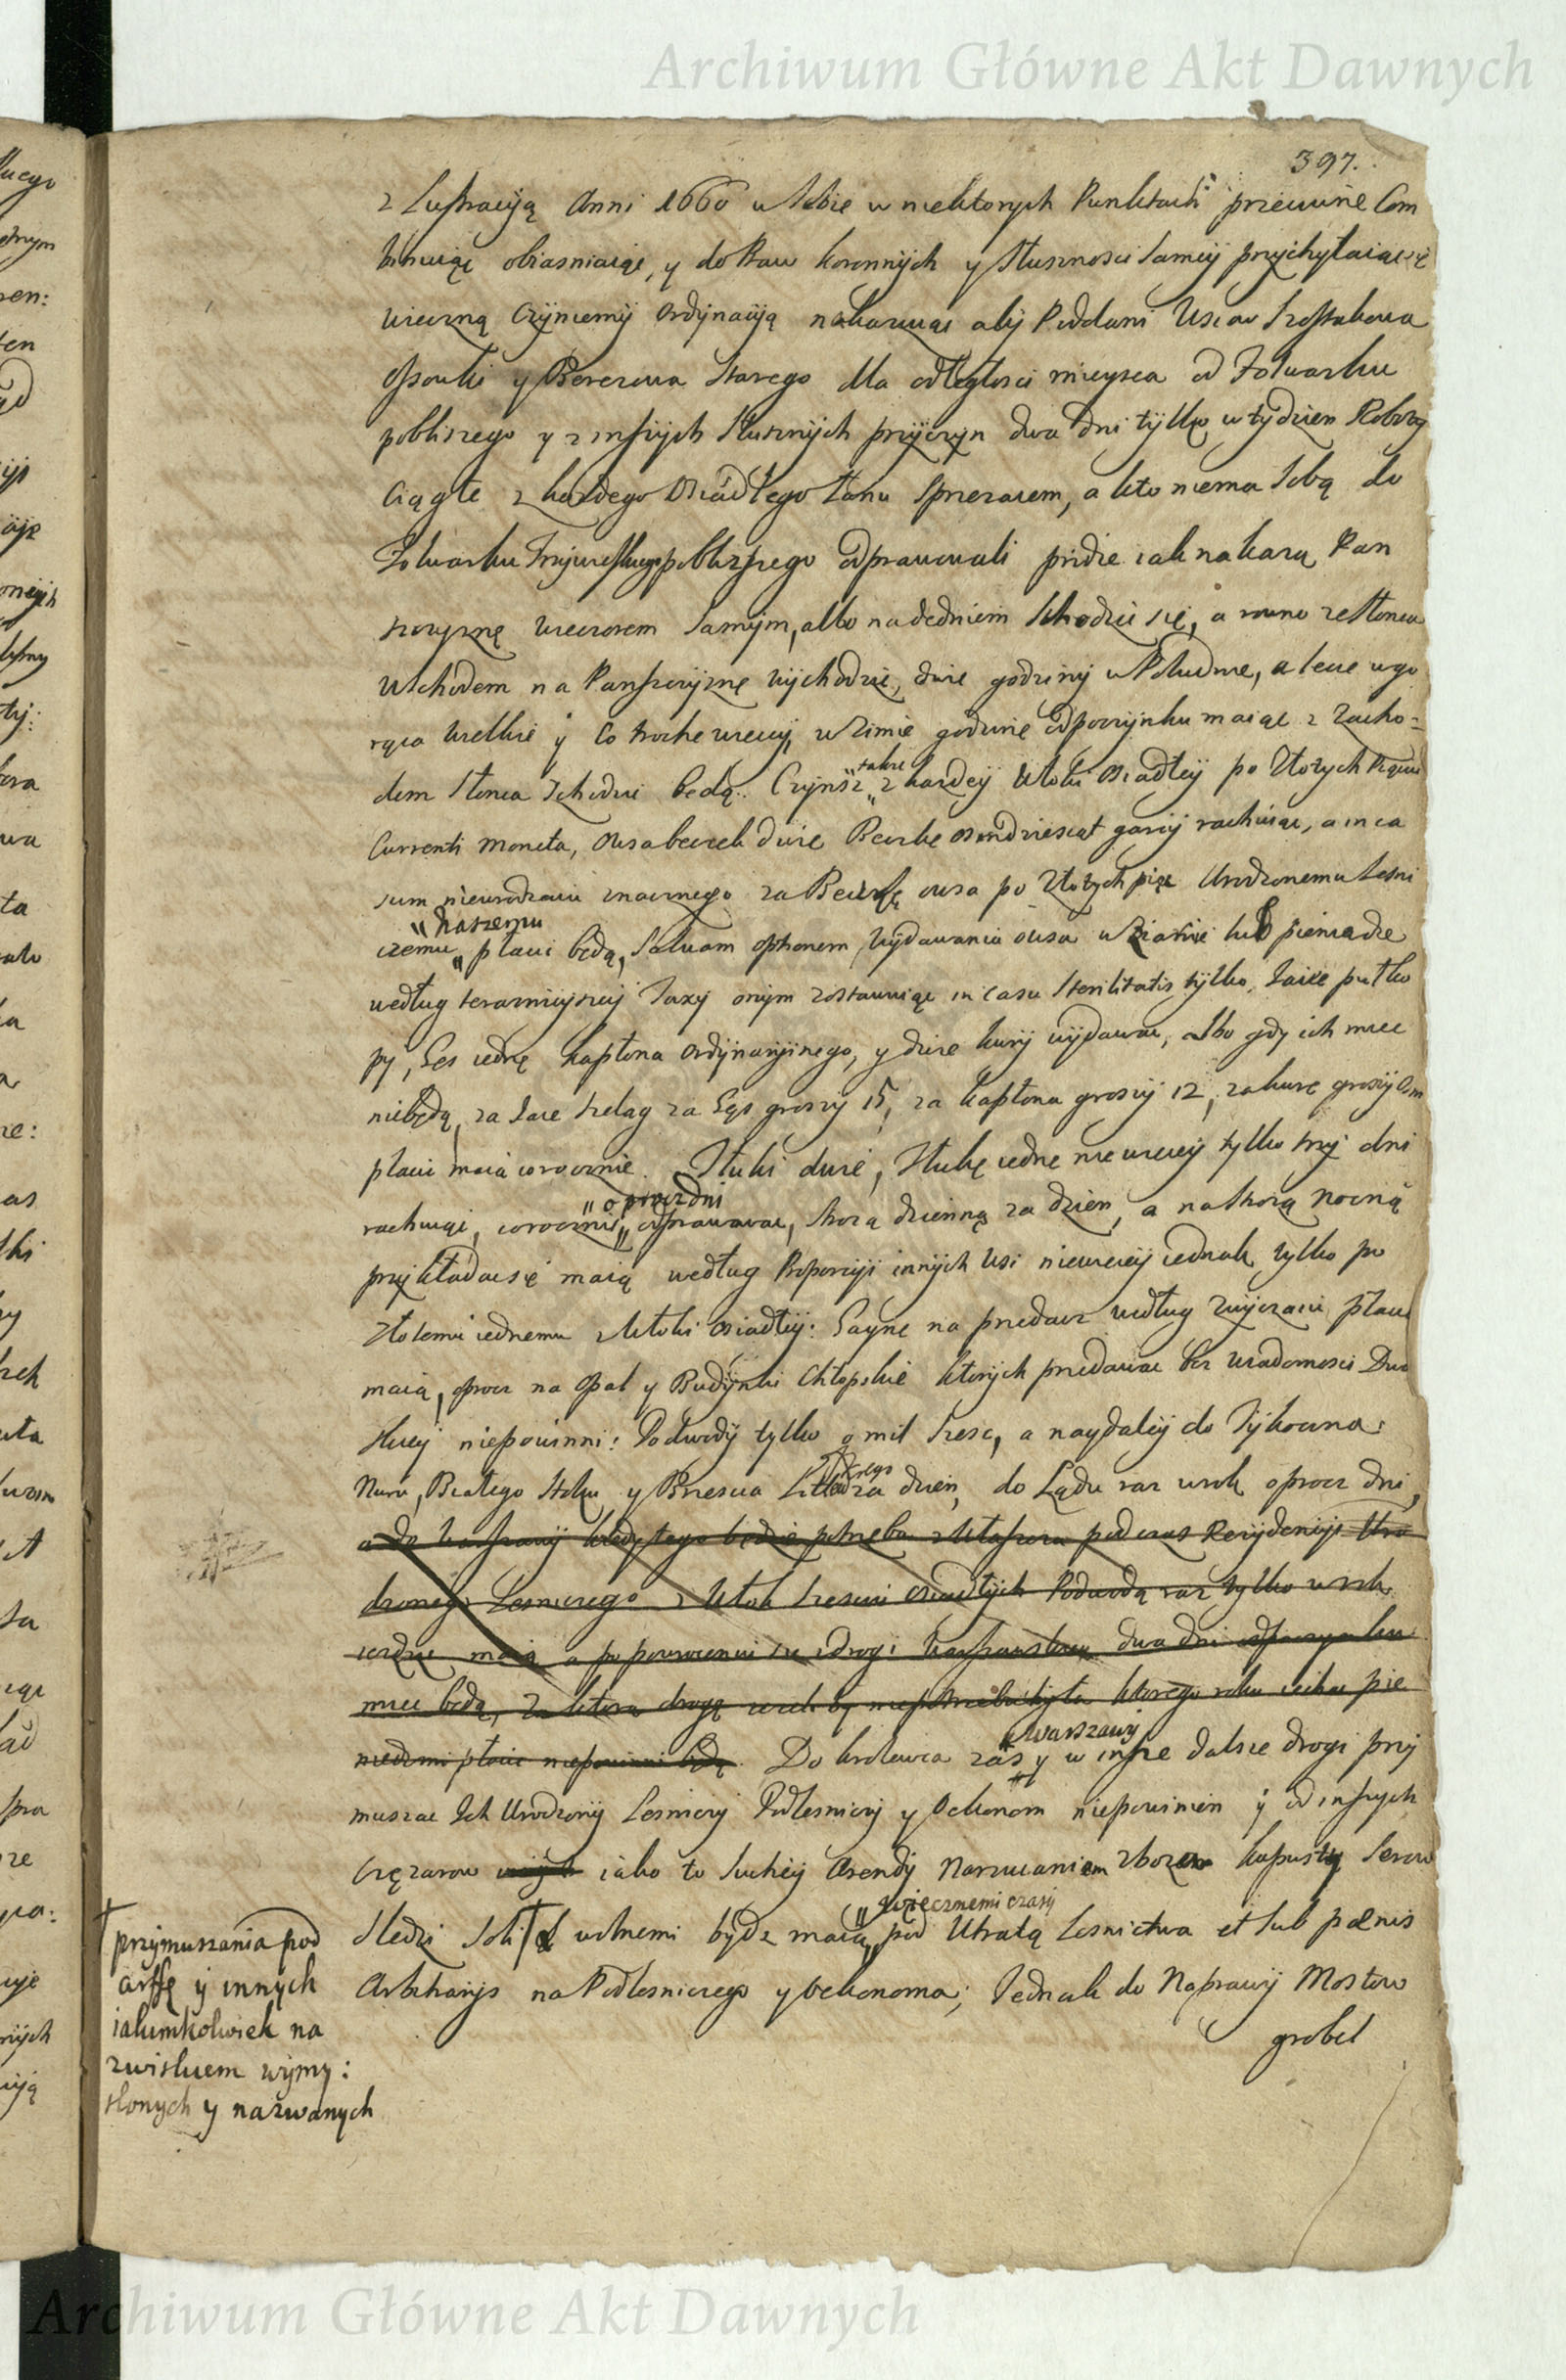 Archiwum Główne Akt Dawnych
397.
z Lustracyją Anni 1660 w sobie w niektorych Punktach przeciwne Com
binuiąc obiasniaiąc, y do Praw koronnych y Słusznosci samey przychylaiąc się
wieczną czyniemy Ordynacyją nakazuiąc aby Poddani Wsiow Szostakowa
Ossowki y Berezowa Starego dla odległosci mieysca od Folwarku
pobliszego y z inszych słusznych przyczyn dwa dni tylko w tydzien Roboty
ciągłe z każdego Osiadłego Łanu sprzezaiem, a kto niema sobą do
Folwarku pobliszego odprawowali pridie iak nakażą Pan
szczyznę wieczorem samym, albo nadedniem schodzic się, a rowno ze Słonca
wschodem na Panszczyznę wychodzic, dwie godziny w Południe, a lecie w go
rąca wielkie y co troche wiecey, w Zimie godzine odpoczynku maiąc z Zacho-
dem Słonca schodzic będą. Czynsz z kazdey Włoki osiadłey po Złotych
także
Currenti Moneta, Owsa beczek dwie Beczke osmdziesiąt garcy rachuiąc, a in ca
sum nieurodzaiu znacznego za Beczkę owsa po Złotych pięc Urodzonemu Lesni
naszemu
czemu płacic będą, Salvam optionem wydawania owsa w Ziarnie lub pieniądze
według terazniejszey Taxy onym zostawuiąc in casu Sterilitatis tylko, Jaiec pułko
py, Gęs iednę kapłona Ordynaryinego, y dwie kury wydawac, Albo gdy ich miec
niebędą, za Jaie szeląg za Gęs groszy 15, za kapłona groszy 12, za kurę groszy Osm
płacic maią corocznie. Stuki dwie, Stukę iedne nie wiecey tylko trzy dni
oprocz dni
rachuiąc, corocznie odprawowac, Stroża dzienną za dzien, a na strożą nocną
przykładac się maią według Proporcyi innych Wsi niewiecey iednak tylko po
Złotemu iednemu z Włoki osiadłey: Gayne na przedarz według zwyczaiu płacic
maią, oprocz na Opał y Budynki Chłopskie ktorych przedawac bez wiadomosci Dwo
rskiey niepowinni: Podwody tylko o mil szesc, a naydaley do Tykocina,
Nura, Białego Stoku y Brzescia Litt za dzien, do Lądu raz w rok oprocz dni,
a do Warszawy kiedy tego będzie potrzeba z Właszcza podczas Rezydencyi Uro
dzonego Lesniczego z Włok szesciu osiadłych Podwodą raz tylko w rok
iezdzic maią a po powroceniu się z drogi Warszawskiey dwa dni odpoczynku
miec będą, za ktora drogę ieżeliby niepotrzebna była ktorego roku iechac pie
niedzmi płacic niepowinni będą. Do krolewca zas y w insze dalsze drogi przy
Warszawy
muszac Ich Urodzony Lesniczy Podlesniczy y Oekonom niepowinien y od inszych
Cięzarow iako to suchey Arendy Narzucaniem zboza kapusty Serow
wiecznemi czasy
Sledzi Soli wolnemi bydz maią, pod Utratą Lesnictwa et sub pænis
Arbitrarys na Podlesniczego y Oekonoma; Jednak do Naprawy Mostow
grobel
† przymuszania pod
arffę y innych
iakimkolwiek na
zwiskiem wymy:
slonych y nazwanych
Archiwum Główne Akt Dawnych